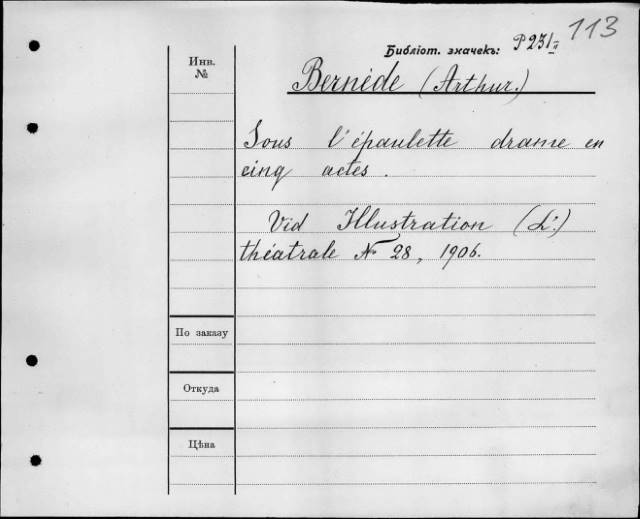 113
Библіот. значекъ: P 231/II
Инв.
№
Bernède (Arthur.)
Sous l'épaulette drame en
cinq actes.
Vid Illustration (L'.)
théatrale № 28, 1906.
По заказу
Откуда
Цѣна